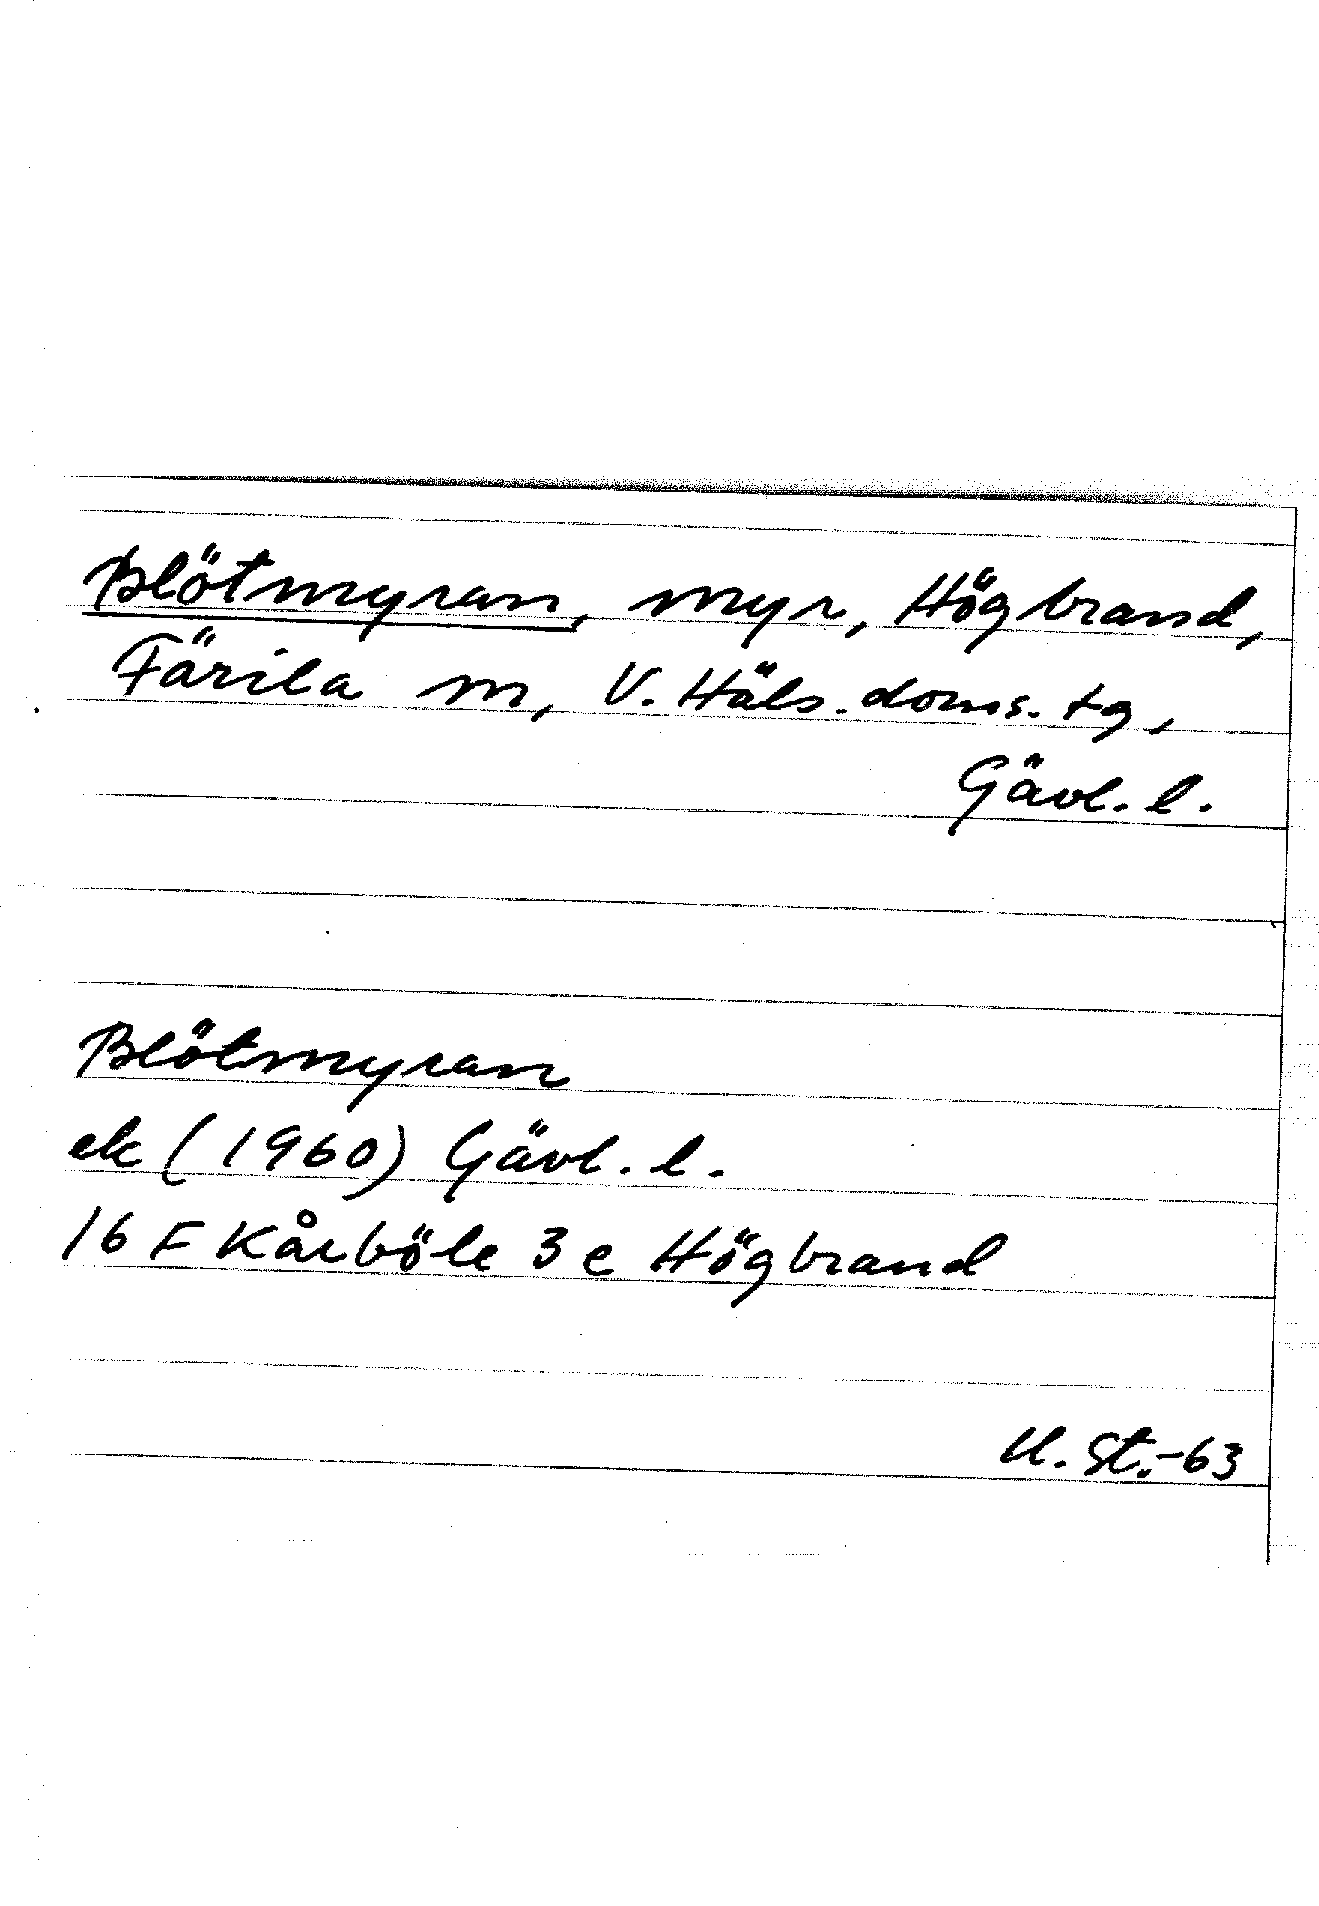 Blötmyran, myr, Högbrand,
Färila m, V. Häls. doms. tg,
Gävl. l.
Blötmyran
ek (1960) Gävl. l.
16 F Kårböle 3 e Högbrand
U. St.-63